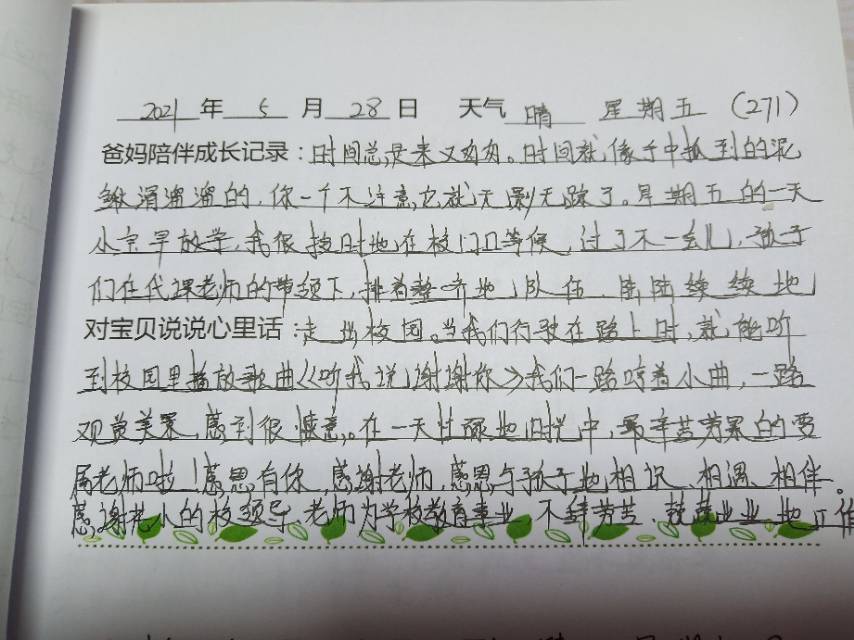 2021 年 5 月 28 日 天气 晴 星期五 (271)
爸妈陪伴成长记录:时间总是来又匆匆。时间就像手中抓到的泥
鳅滑溜溜的,你一个不注意,它就无影无踪了。星期五的一天
小京早放学,我很按时地在校门口等候,过了不一会儿,孩子
们在代课老师的带领下,排着整齐地队伍、陆陆续续地
对宝贝说说心里话:走出校园。当我们行驶在路上时,就能听
到校园里播放歌曲《听我说谢谢你》我们一路哼着小曲,一路
观赏美景,感到很惬意。在一天忙碌地时光中,最辛苦劳累的要
属老师啦!感恩有你,感谢老师,感恩与孩子地相识、相遇、相伴。
感谢 小的校领导、老师为学校教育事业,不辞劳苦、兢兢业业地工作